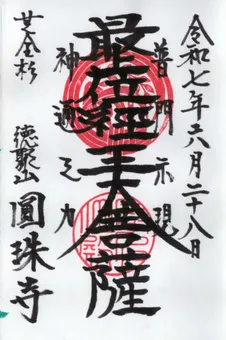 令和七年六月二十八日
普門示現
最上位經王大菩薩
神通之力
圓珠寺